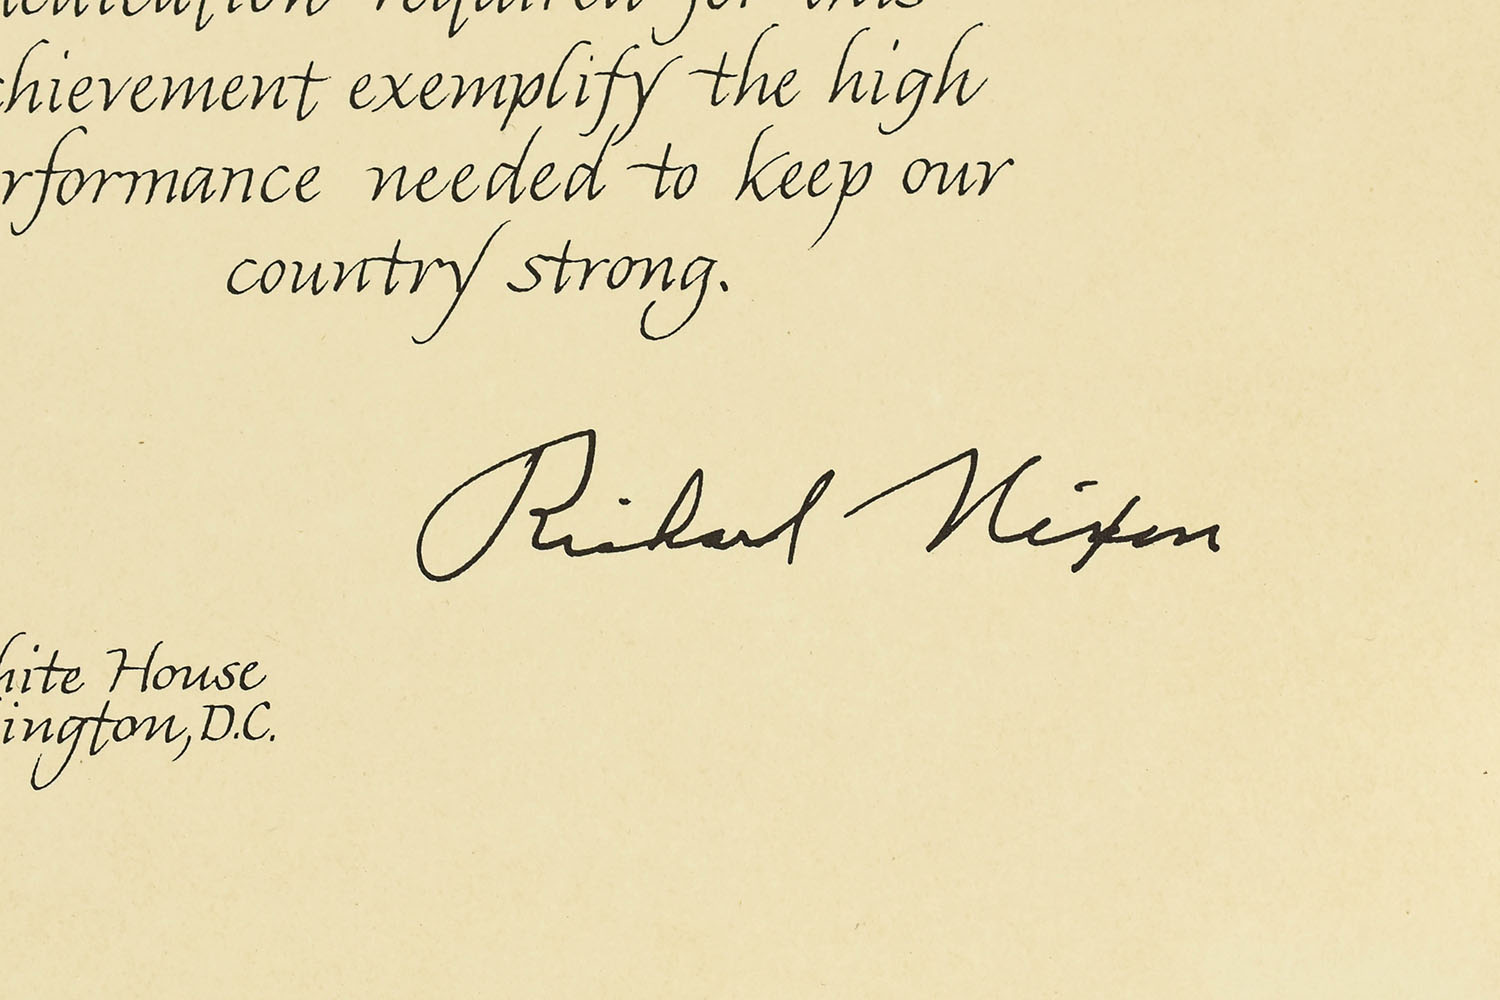 required for this
chievement exemplify the high
rformance needed to keep our
country strong.
Richard Nixon
hite House
ington, D.C.